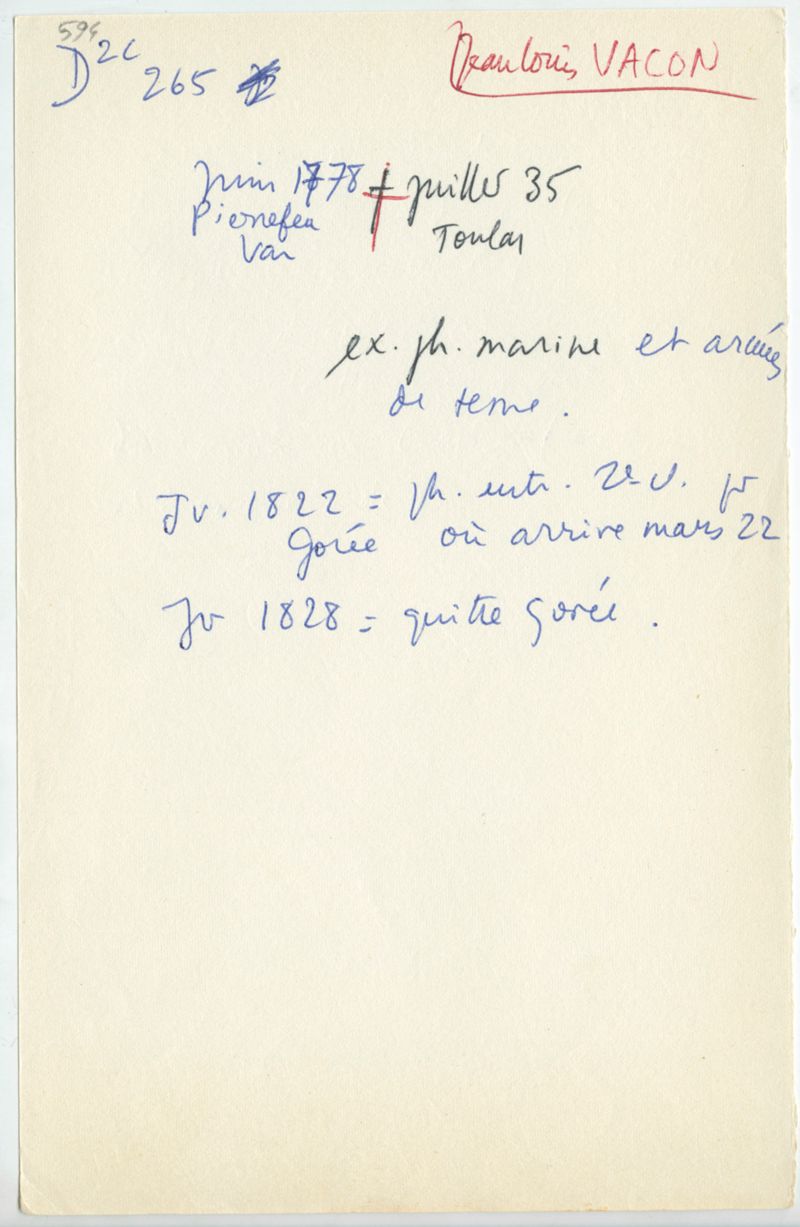 594
D2c 265
Jean Louis VACON
Juin 1778 † Juillet 35
Pierrefeu Toulon
Var
ex. ph. marine et armées
de terre.
Jv. 1822 = ph. entr. 2e cl. pr
Gorée où arrive mars 22
Jv 1828 = quitte Gorée.